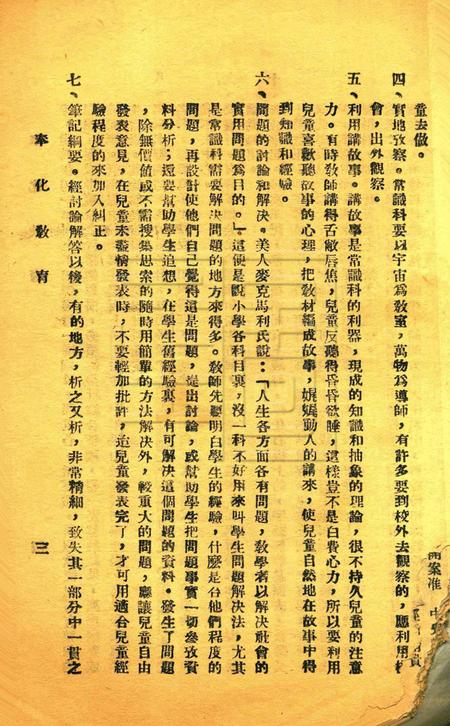 童去做。
四、實地攷察。常識科要以宇宙爲敎室，萬物爲導師，有許多要到校外去觀察的，應利用
會，出外觀察。
五、利用講故事。講故事是常識科的利器，現成的知識和抽象的理論，很不持久兒童的注意
力。有時敎師講得舌敝唇焦，兒童反聽得昏昏欲睡，這樣豈不是白費心力，所以要利用
兒童喜歡聽故事的心理，把敎材編成故事，娓娓動人的講來，使兒童自然地在故事中得
到知識和經驗。
六、問題的討論和解決。美人麥克馬利氏說：「人生各方面各有問題，敎學者以解決社會的
實用問題爲目的。」這便是說小學各科目裏，沒一科不好用來叫學生問題解決法，尤其
是常識科需要解決問題的地方來得多。敎師先要明白學生的經驗，什麼是合他們程度的
問題，再設計使他們自己覺得這是問題，提出討論，或幫助學生把問題事實一切參攷資
料分析；還要幫助學生追想，在學生舊經驗裏，有可解決這個問題的資料。發生了問題
，除無價値或不需搜集思索的隨時用簡單的方法解決外，較重大的問題，應讓兒童自由
發表意見，在兒童未盡情發表時，不要輕加批評，迨兒童發表完了，才可用適合兒童經
驗程度的來加入糾正。
七、筆記綱要。經討論解答以後，有的地方，析之又析，非常精細，致失其一部分中一貫之
奉化敎育
三
開案准